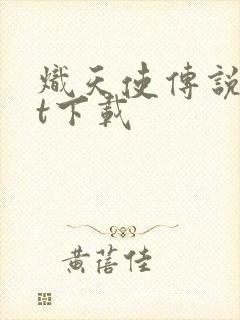 熾天使傳說
t下載
黃蓓佳